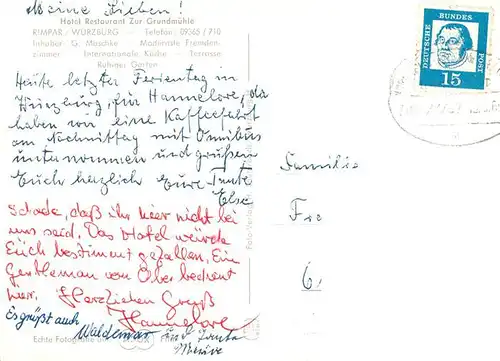 Meine Lieben!
Hotel Restaurant Zur Grundmühle
RIMPAR / WÜRZBURG - Telefon 09365 / 710
Inhaber: G. Maschke Modernste Fremden-
zimmer - Internationale Küche - Terrasse
Ruhiger Garten
Heute letzter Ferientag in
Würzburg, für Hannelore, da
haben wir eine Kaffeefahrt
am Nachmittag mit Omnibus
unternommen und grüßen
Euch herzlich Eure Tante
Else
Schade, daß ihr hier nicht bei
uns seid. Das Hotel würde
Euch bestimmt gefallen. Ein
Gentleman vom Ober bedient
hier. Herzlichen Gruß
Hannelore
Es grüßt auch Waldemar
und Tante
DEUTSCHE BUNDESPOST
15
Familie
Fre
6
Echte Fotografie